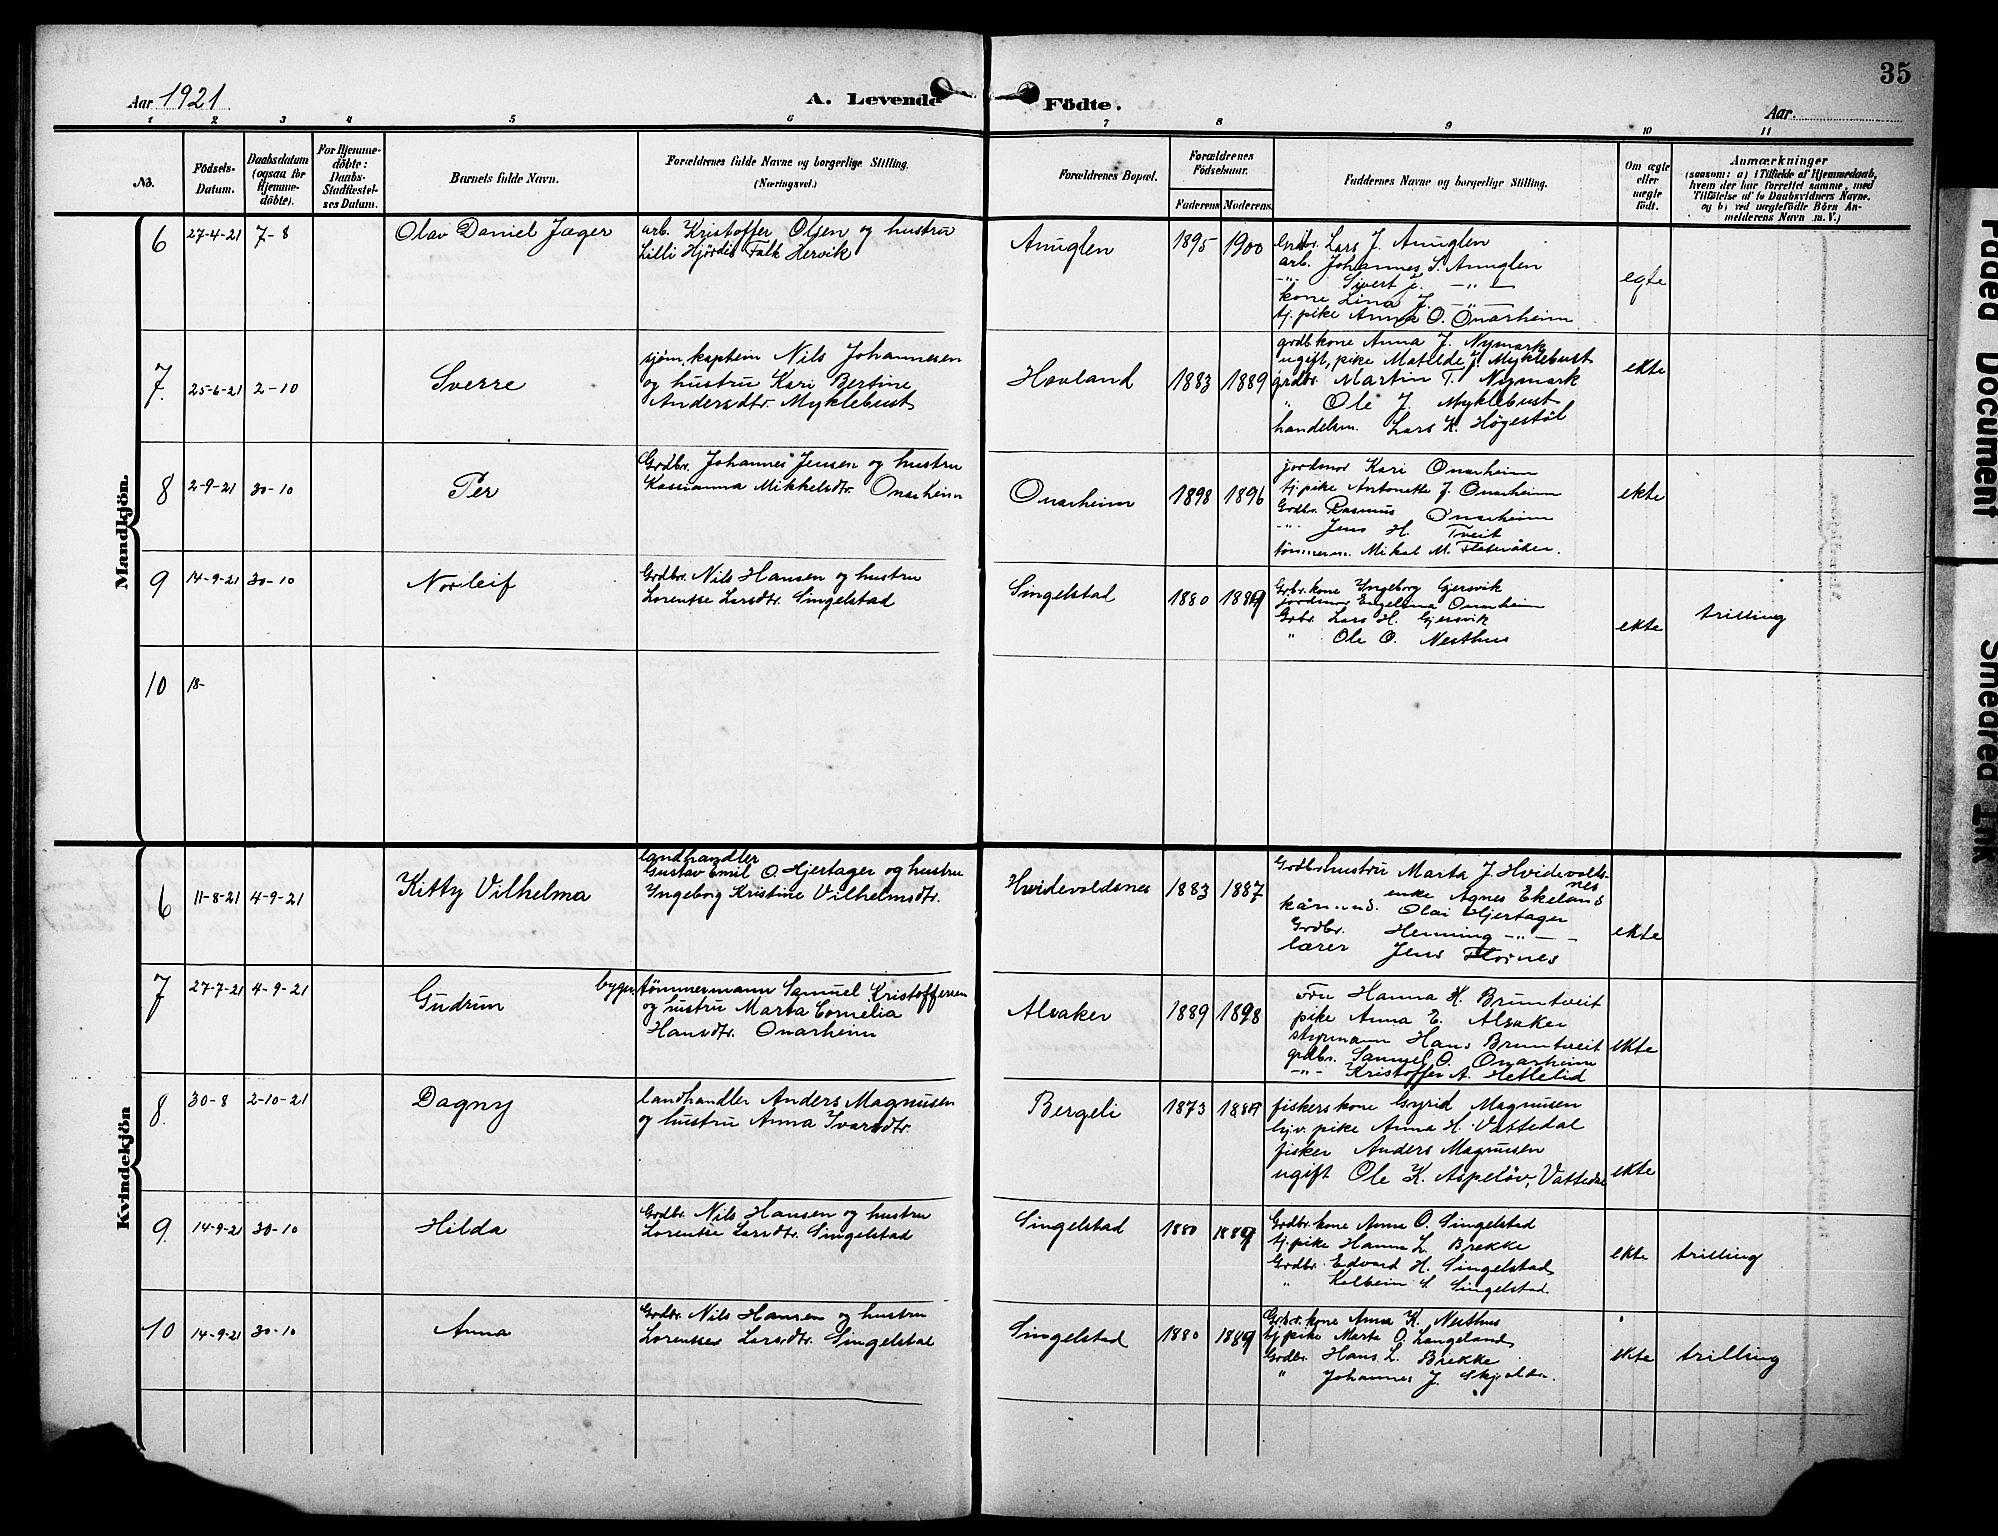 35
Aar 1921
A. Levende Födte.
Aar.
1 2 3 4 5 6 7 8 9 10 11
No.
Födsels-
Datum.
Daabsdatum
(ogsaa for
Hjemme-
döbte).
For Hjemme-
döbte:
Daabs-
Stadfæstel-
ses Datum.
Barnets fulde Navn.
Forældrenes fulde Navne og borgerlige Stilling.
(Næringsvei.)
Forældrenes Bopæl.
Forældrenes
Födselsaar.
Faderens Moderens
Faddernes Navne og borgerlige Stilling.
Om ægte
eller
uægte
født.
Anmærkninger
(saasom: a) i Tilfælde af Hjemmedaab,
hvem der har forrettet samme, med
Tilföielse af to Daabsvidners Navne.
og b) ved uægtefödte Börn An-
melderens Navn m. V.)
Mandkjön.
6 27-4-21 7-8
Olav Daniel Jæger
arb. Kristoffer Olsen og hustru
Lilli Hjördis Falk Hervik
Anuglen
1895 1900
Grdbr. Lars J. Anuglen
arb. Johannes S. Anuglen
-"- Sivert J. -"-
kone Lina J. -"-
tj.pike Anna O. Onarheim
egte
7. 25-6-21 2-10
Sverre
sjöm. kaptein Nils Johannesen
og hustru Kari Bertine
Andersdtr. Myklebust
Havland
1883 1889
grdb.kone Anna J. Nymark
ugift, pike Matilde J. Myklebust
grdbr. Martin T. Nymark
" Ole J. Myklebust
handelsm. Lars K. Högestöl
ekte
8 2-9-21 30-10
Per
Grdbr. Johannes Jensen og hustru
Kassianna Mikkelsdtr. Onarheim
Onarheim
1898 1896
jordmor Kari Onarheim
tj.pike Antonette J. Onarheim
Grdbr. Rasmus Onarheim
-"- Jens H. Tveit
tömmerm. Mikal M. Flateråker.
ekte
9 14-9-21 30-10
Norleif
Grdbr. Nils Hansen og hustru
Lorentse Larsdtr. Singelstad
Singelstad
1880 1889
Grbr.kone Yngeborg Gjersvik
jordmor Engelina Onarheim
Grbr. Lars H. Gjersvik
" Ole O. Nesthus
ekte
trilling
10 18-
Kvindekjön
6 11-8-21 4-9-21
Kitty Vilhelma
landhandler
Gustav Emil O. Hjertager og hustru
Yngeborg Kristine Vilhelmsdtr.
Hvidevoldsnes
1883 1887
Grdbrhustru Marta J. Hvidevolds-
nes
enke Agnes Ekeland
kårmand. Olai Hjertager
Grdbr. Henning -"-
lærer Jens Flornes
ekte
7 27-7-21 4-9-21
Gudrun
bygn.tömmermann Samuel Kristoffersen
og hustru Marta Cornelia
Hansdtr. Onarheim
Alsaker
1889 1898
Fru Hanna K. Bruntveit
pike Anna E. Alsaker
styrmann Hans Bruntveit
grdbr. Samuel O. Onarheim
-"- Kristoffer A. Hetletid
ekte
8. 30-8 2-10-21
Dagny
landhandler Anders Magnusen
og hustru Anna Ivarsdtr.
Bergeli
1873 1889
fiskerskone Gyrid Magnusen
hjv. pike Anna H. Vattedal
fisker Anders Magnusen
ugift Ole K. Aspelöv, Vattedal
ekte
9. 14-9-21 30-10
Hilda
Grdbr. Nils Hansen og hustru
Lorentse Larsdtr. Singelstad
Singelstad
1880 1889
Grdbr.kone Anna O. Singelstad
tj.pike Hanna L. Brekke
Grdbr. Edvard H. Singelstad
" Kolbein S. Singelstad
ekte
trilling
10 14-9-21 30-10
Anna
Grdbr. Nils Hansen og hustru
Lorentse Larsdtr. Singelstad
Singelstad
1880 1889
Grdbr.kone Anna K. Nesthus
tj.pike Marta O. Langeland
Grdbr. Hans L. Brekke
" Johannes J. Skjelde.
ekte
trilling
Faded Document
Smeared Ink